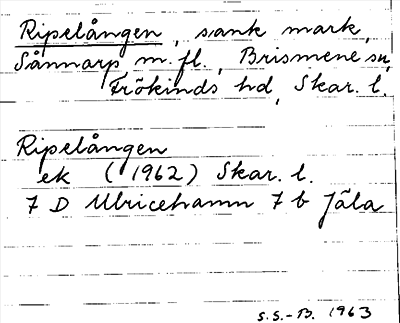 Ripelången, sank mark,
Sånnarp m.fl., Brismene sn,
Frökinds hd, Skar. l.
Ripelången
ek (1962) Skar. l.
7 D Ulricehamn 7 b Jäla
S.S.-B. 1963